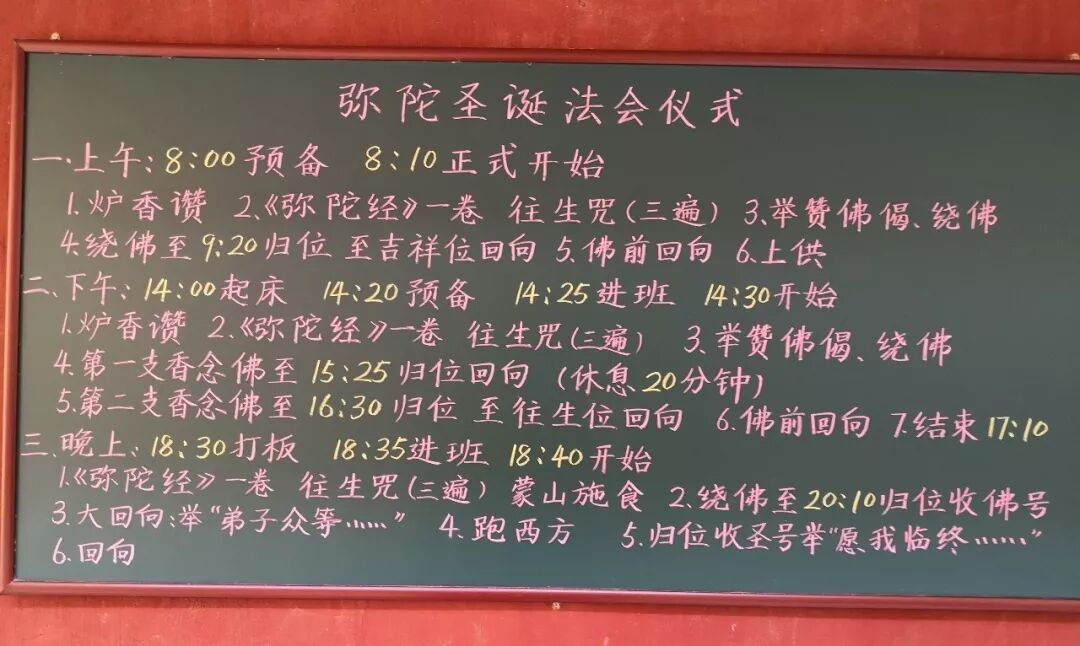 弥陀圣诞法会仪式
一.上午:8:00预备 8:10正式开始
1.炉香讚 2.《弥陀经》一卷 往生咒(三遍) 3.举赞佛偈、绕佛
4.绕佛至9:20归位 至吉祥位回向 5.佛前回向 6.上供
二.下午:14:00起床 14:20预备 14:25进班 14:30开始
1.炉香讚 2.《弥陀经》一卷 往生咒(三遍) 3.举赞佛偈、绕佛
4.第一支香念佛至15:25归位回向 (休息20分钟)
5.第二支香念佛至16:30归位 至往生位回向 6.佛前回向 7.结束17:10
三.晚上:18:30打板 18:35进班 18:40开始
1.《弥陀经》一卷 往生咒(三遍) 蒙山施食 2.绕佛至20:10归位收佛号
3.大回向:举“弟子众等……” 4.跑西方 5.归位收圣号举“愿我临终……”
6.回向